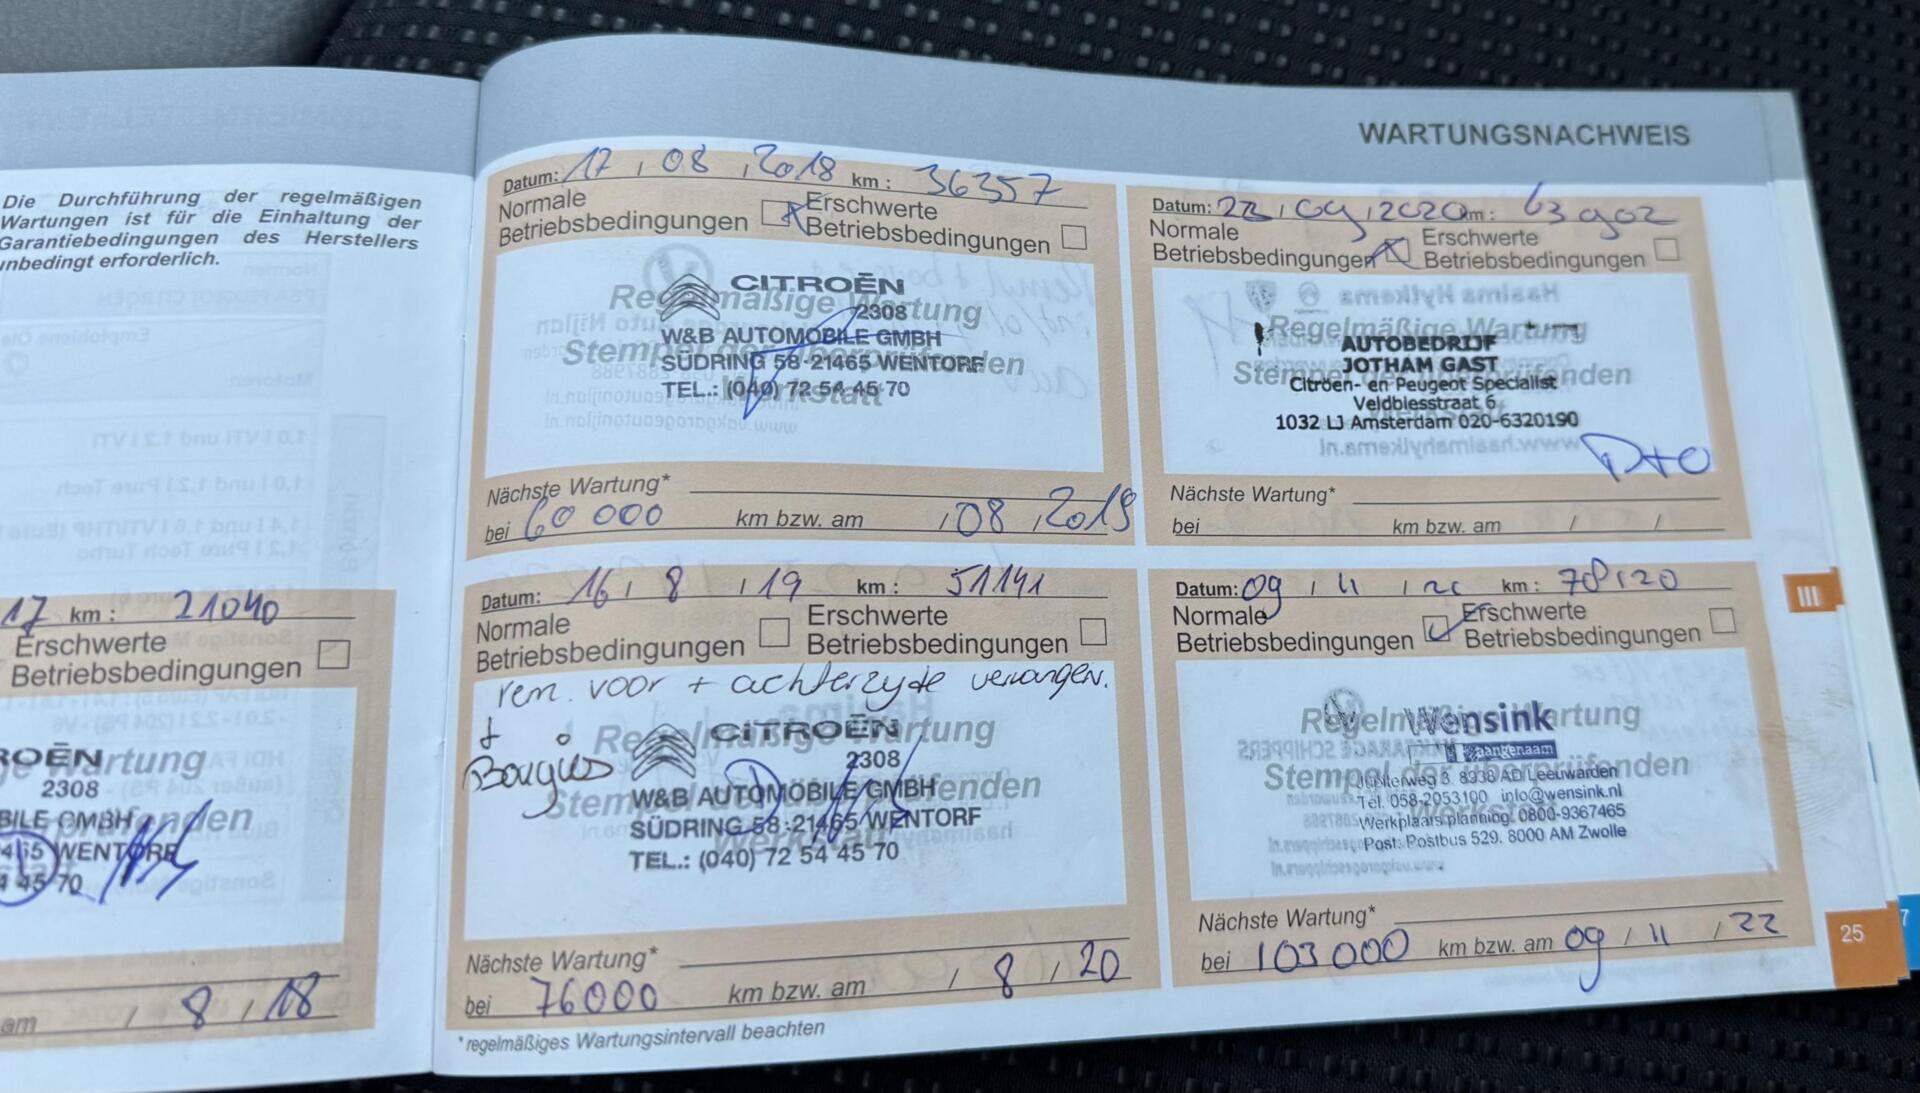 WARTUNGSNACHWEIS
Die Durchführung der regelmäßigen
Wartungen ist für die Einhaltung der
Garantiebedingungen des Herstellers
unbedingt erforderlich.
17 km: 21040
Erschwerte
Betriebsbedingungen
ROËN
2308
BILE GMBH
465 WENTORF
4 45 70
am / 8 / 18
Datum: 17 / 08 / 2018 km: 36357
Normale
Betriebsbedingungen
Erschwerte
Betriebsbedingungen
Regelmäßige Wartung
Stempel der überprüfenden
Werkstatt
CITROËN
2308
W&B AUTOMOBILE GMBH
SÜDRING 58·21465 WENTORF
TEL.: (040) 72 54 45 70
Nächste Wartung*
bei 60 000 km bzw. am / 08 / 2019
Datum: 16 / 8 / 19 km: 51141
Normale
Betriebsbedingungen
Erschwerte
Betriebsbedingungen
rem. voor + achterzyde vervangen.
+
Bougies
Regelmäßige Wartung
Stempel der überprüfenden
Werkstatt
CITROËN
2308
W&B AUTOMOBILE GMBH
SÜDRING 58·21465 WENTORF
TEL.: (040) 72 54 45 70
Nächste Wartung*
bei 76000 km bzw. am / 8 / 20
*regelmäßiges Wartungsintervall beachten
Datum: 22 / 09 / 2020 km: 63 902
Normale
Betriebsbedingungen
Erschwerte
Betriebsbedingungen
Regelmäßige Wartung
Stempel der überprüfenden
AUTOBEDRIJF
JOTHAM GAST
Citröen- en Peugeot Specialist
Veldbiesstraat 6
1032 LJ Amsterdam 020-6320190
Nächste Wartung*
bei km bzw. am / /
Datum: 09 / 11 / km: 78120
Normale
Betriebsbedingungen
Erschwerte
Betriebsbedingungen
Regelmäßige Wartung
Stempel der überprüfenden
Werkstatt
Wensink
aangenaam
3 8938 AD Leeuwarden
Tel. 058-2053100 info@wensink.nl
Werkplaatsplanning: 0800-9367465
Post: Postbus 529, 8000 AM Zwolle
Nächste Wartung*
bei 103 000 km bzw. am 09 / 11 / 22
III
25
7